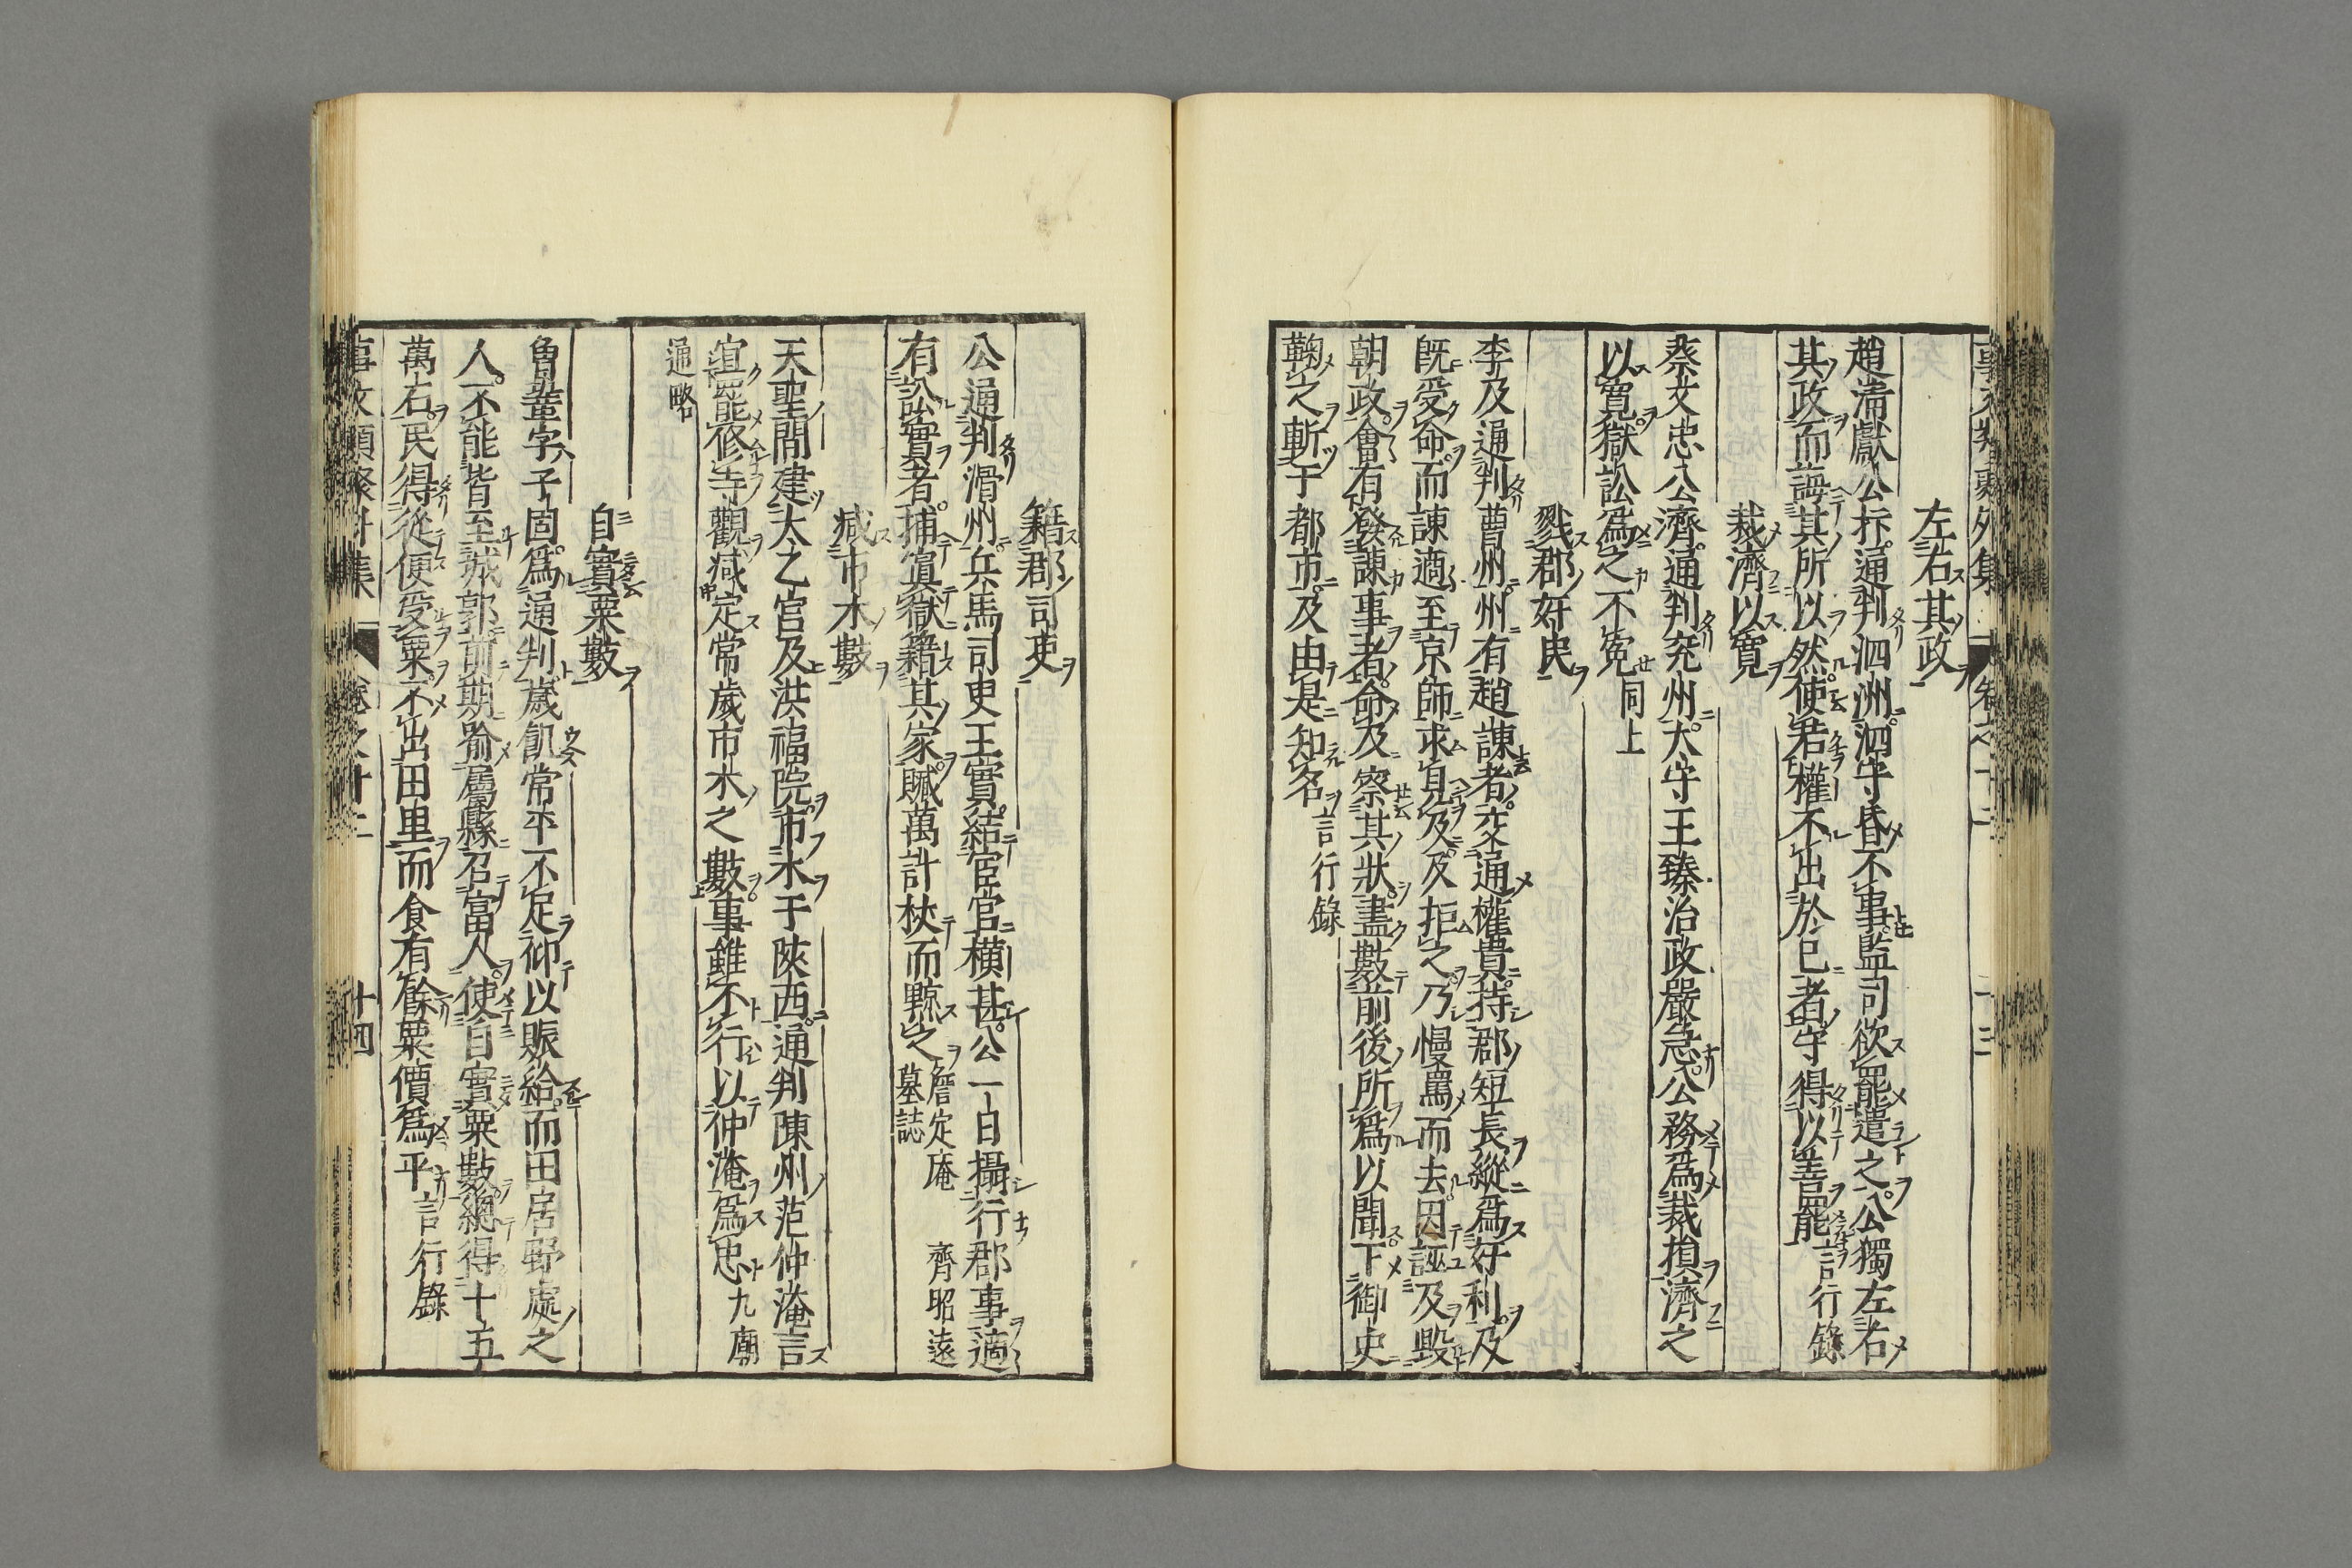 左右其政
趙清獻公抃通判泗洲泗守昏不事監司欲罷遣之公獨左右
其政而誨其所以然使若權不出於已者守得以善罷言行錄
裁濟以寬
蔡文忠公濟通判兖州太守王臻治政嚴急公務爲裁損濟之
以寬獄訟爲之不寃同上
戮郡奸民
李及通判曹州州有趙諫者交通權貴持郡短長縱爲奸利及
旣受命而諫適至京師求見及及拒之乃慢罵而去因誣及毀
朝政會有發諫事者命及察其狀盡數前後所爲以聞下御史
鞫之斬于都市及由是知名言行錄
籍郡司吏
公通判滑州兵馬司吏王實結宦官橫甚公一日攝行郡事適
有訟實者捕寘獄籍其家贓萬計杖而黥之詹定庵　齊昭遠
墓誌
减市木數
天聖間建太乙宮及洪福院市木于陝西通判陳州范仲淹言
宜罷修寺觀减定常歲市木之數事雖不行以仲淹爲忠九廟
通略
自實粟數
魯鞏字子固爲通判歲飢常平不足仰以賑給而田居野處之
人不能皆至城郭前期喻屬縣召富人使自實粟數總得十五
萬石民得從便受粟不出田里而食有餘粟價爲平言行錄
事文類聚外集 卷之十二 十四